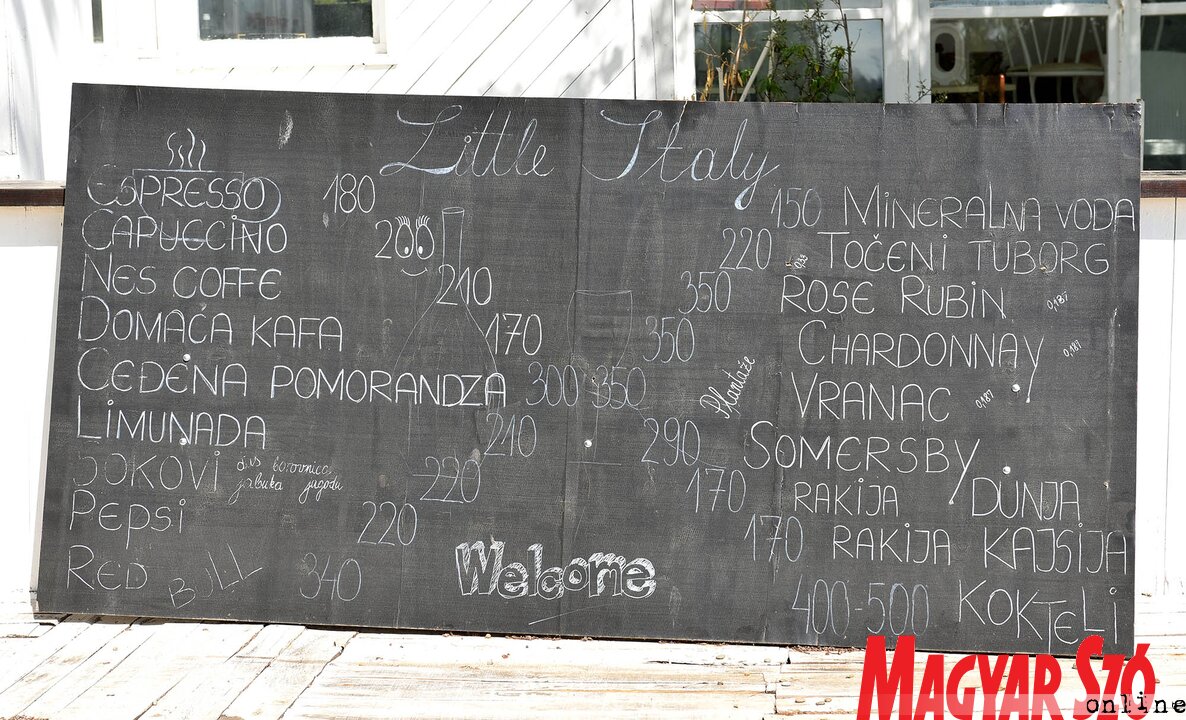 Little Italy
ESPRESSO 180
CAPUCCINO 200
NES COFFE 210
DOMAĆA KAFA 170
CEĐENA POMORANDZA 300
LIMUNADA 210
SOKOVI đus borovnica
jabuka jagoda 220
PEPSi 220
RED BULL 340
150 MINERALNA VODA
220 0,33 TOČENI TUBORG
350 ROSE RUBIN 0,187
350 CHARDONNAY 0,187
350 Plantaže VRANAC 0,187
290 SOMERSBY
170 RAKIJA DUNJA
170 RAKIJA KAJSIJA
400-500 KOKTELi
Welcome
MAGYAR SZÓ
online